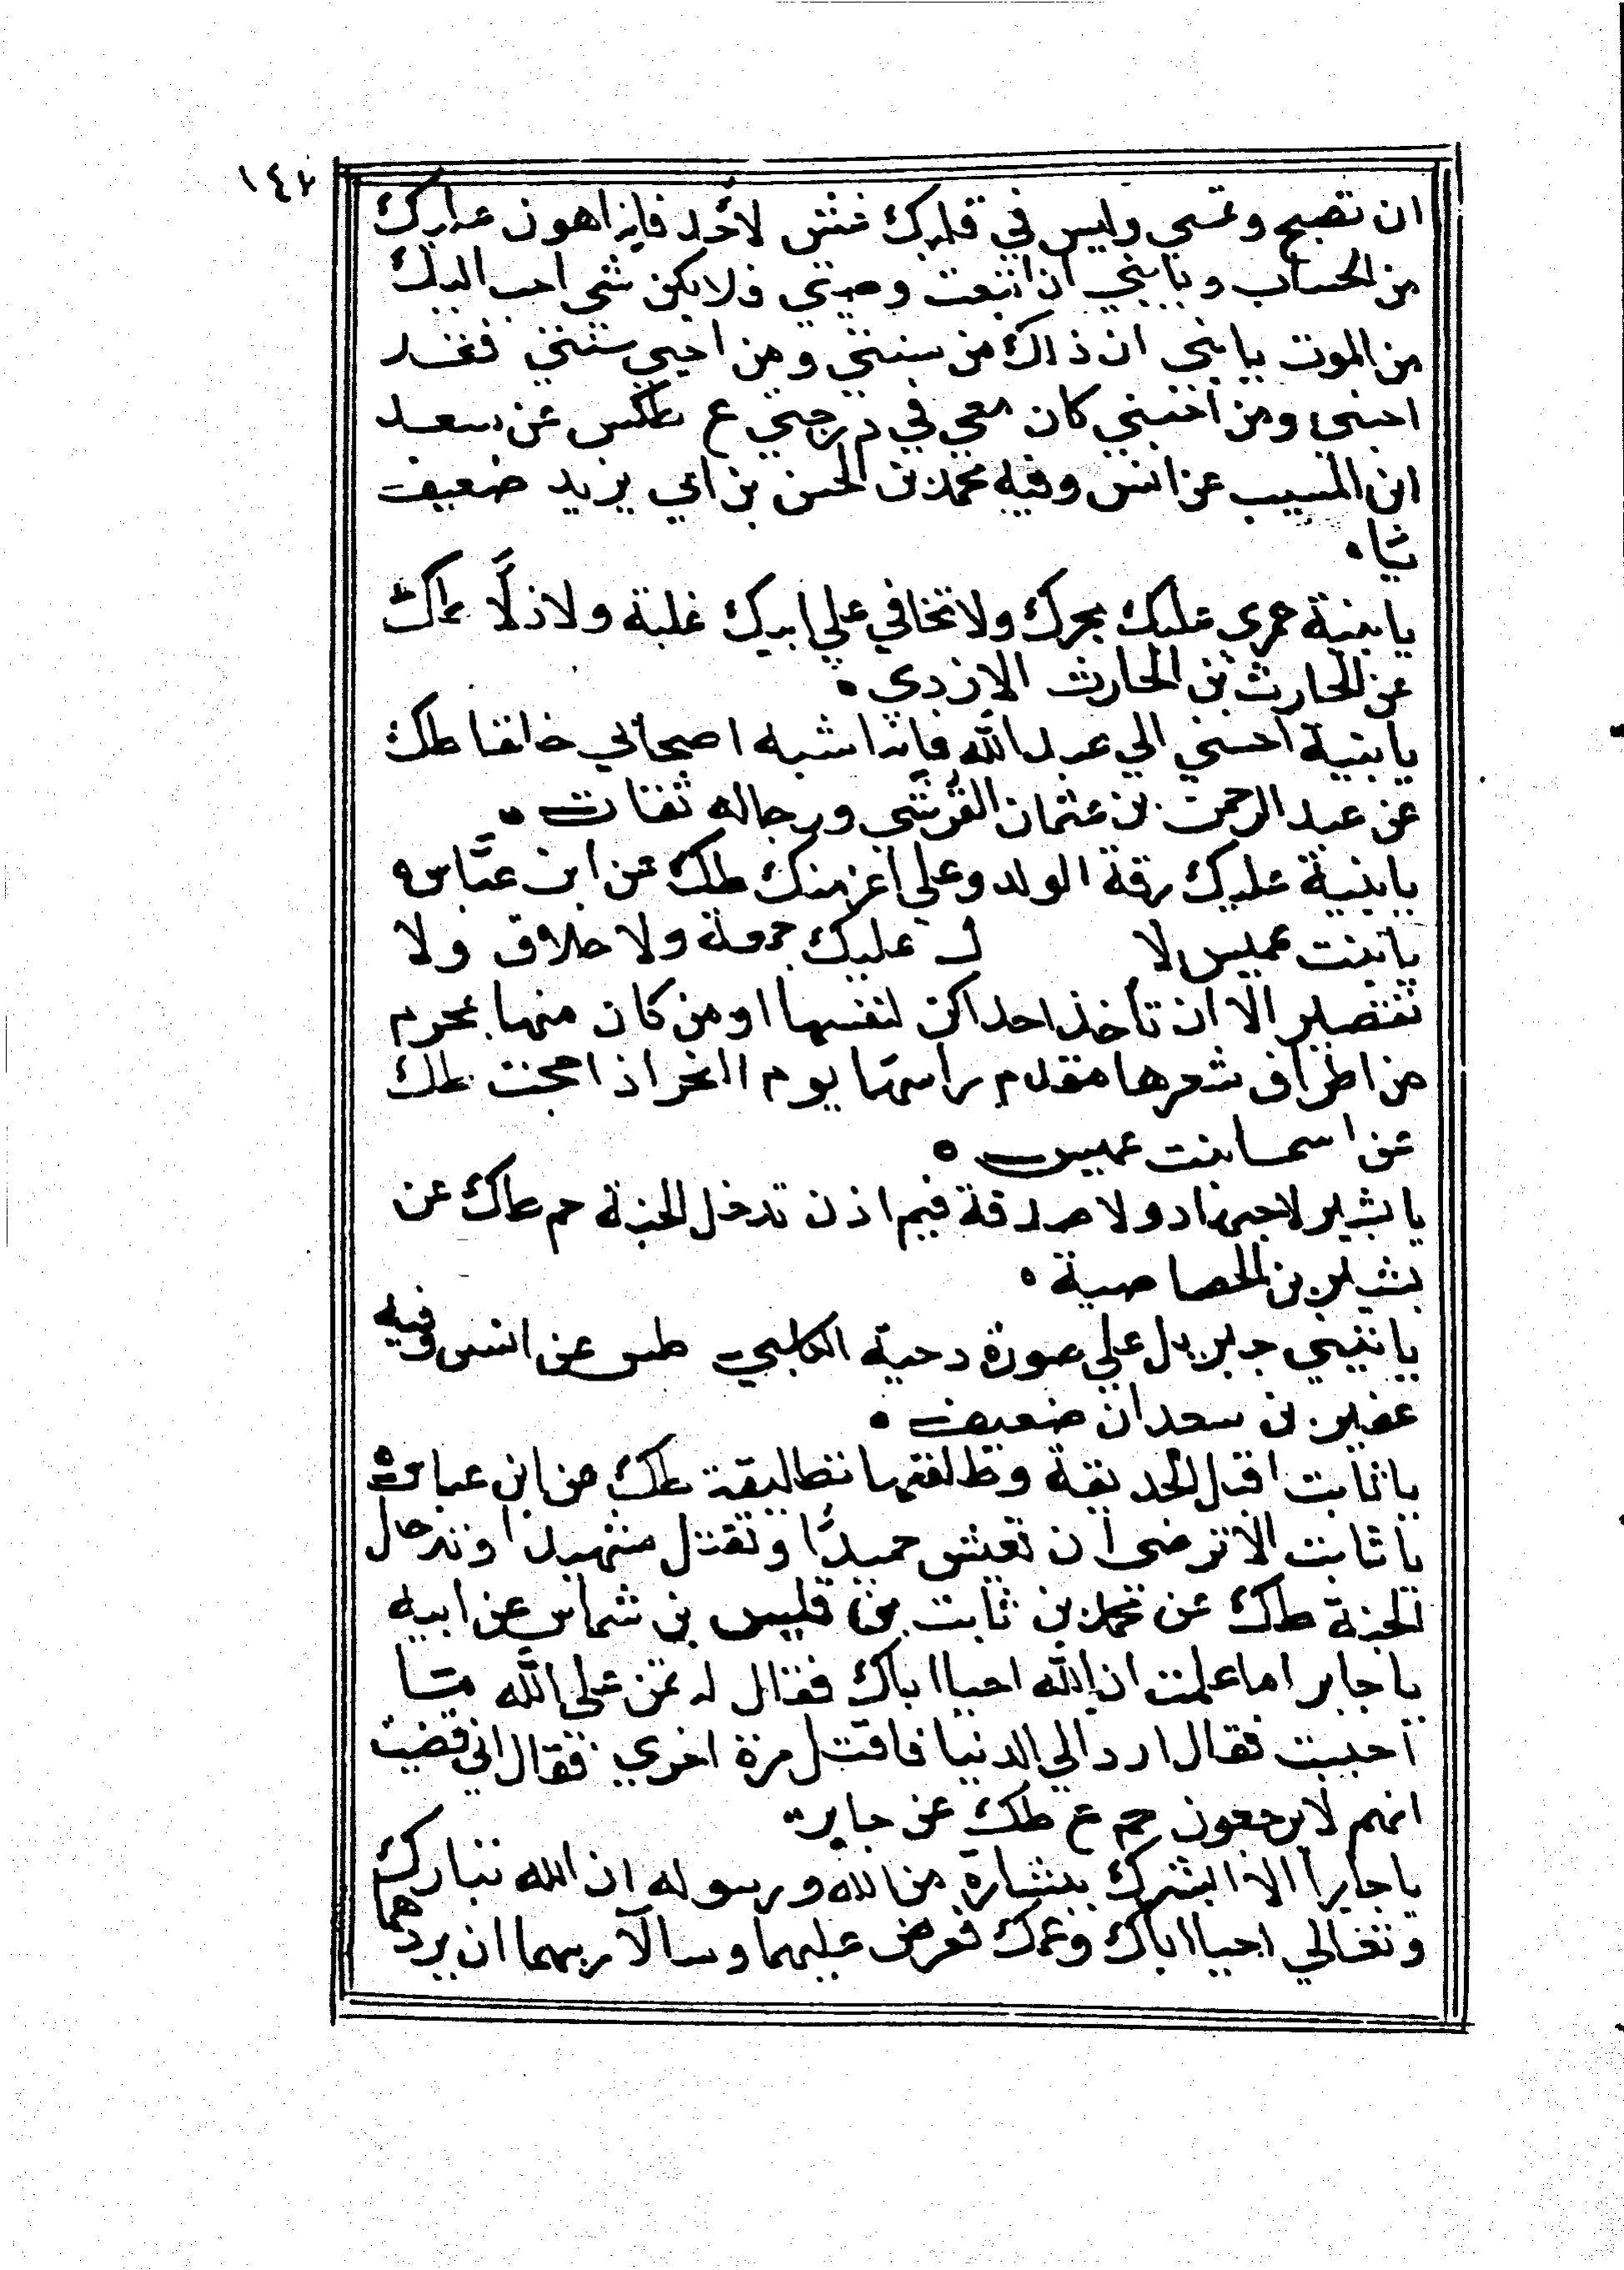 ١٤٧
ان تصبح وتمسي وليس في قلبك غش لأحد فانه اهون عليك
من الحساب ويابني ان اتبعت وصيتي فلا يكن شي احب اليك
من الموت يابني ان ذاك من سنتي ومن احيي سنتي فقد
احبني ومن احبني كان معي في درجتي ع طكس عن سعيد
ابن المسيب عن انس وفيه محمد بن الحسن بن ابي يزيد ضعيف
يا بنية خمري عليك نحرك ولا تخافي علي ابيك غلبة ولا ذلًا طك
عن الحارث بن الحارث الازدي ٥
يا بنية احسني الي عبد الله فانه اشبه اصحابي خلقا طك
عن عبد الرحمن بن عثمان القرشي ورجاله ثقات ٥
يا بنية عليك رقة الولد وعلي اعز منك طك عن ابن عباس ٥
يا بنت عميس لا ل عليك جمعة ولا حلاق ولا
تقصير الا ان تاخذ احداكن لنفسها او من كان منها بمحرم
من اطراف شعرها مقدم راسها يوم النحر اذا حجت طك
عن اسما بنت عميس ٥
يا بشير لا جهاد ولا صدقة فبم اذن تدخل الجنة حم طك عن
بشير بن الخصاصية ٥
ياتيني جبريل علي صورة دحية الكلبي طس عن انس وفيه
عفير بن سعدان ضعيف ٥
يا ثابت اقبل الحديقة وطلقها تطليقة طك عن ابن عباس ٥
يا ثابت الا ترضى ان تعيش حميدًا وتقتل شهيدا وتدخل
الجنة طك عن محمد بن ثابت بن قيس بن شماس عن ابيه
يا جابر اما علمت ان الله احيا اباك فقال له تمن علي الله ما
احببت فقال ارد الي الدنيا فاقتل مرة اخري فقال اني قضيت
انهم لا يرجعون حم ع طك عن جابر ٥
يا جابر الا ابشرك ببشارة من الله ورسوله ان الله تبارك
وتعالي احيا اباك وعمك فعرض عليهما وسالا ربهما ان يردهما